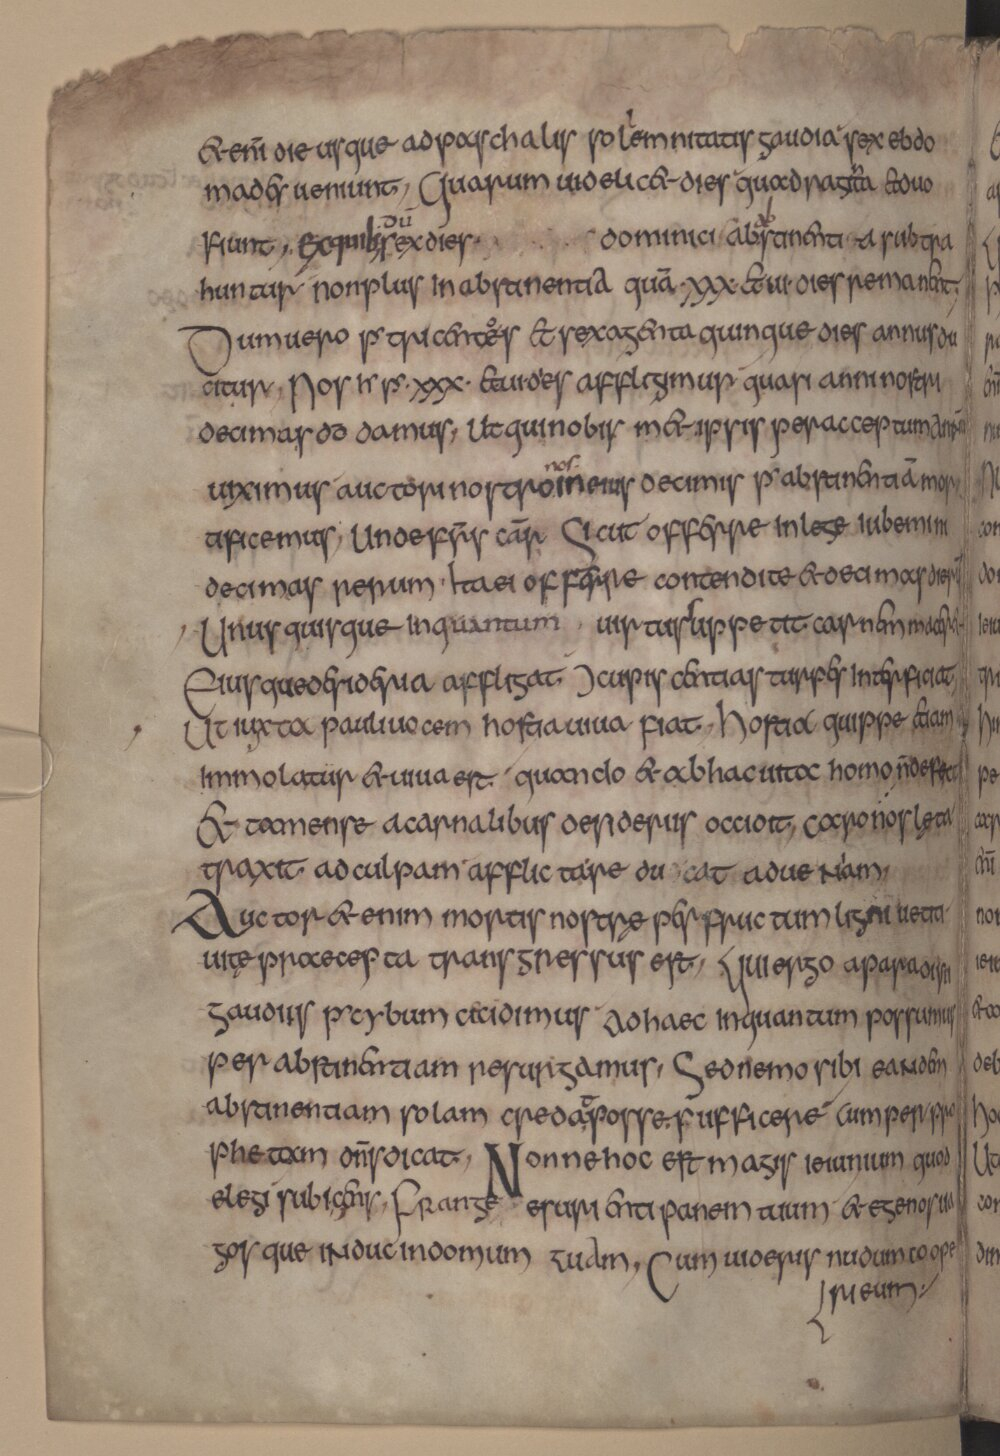 &enī die usque adpaschalis solemnitatis gaudia sex ebdo
madƀ ueniunt, Quarum uidelic& dies quadragīta & duo
fiunt, Ex quibꝰ dū sex dies dominici abstinenti a subtra
huntur non plus in abstinentia quā xxx & ui dies remanent,
Dum uero ꝑ tricentos & sexaginta quinque dies annus du
citur, Nos h ꝑ xxx & ui dies affligimur quasi anni nostri
decimas dō damus, Ut qui nobis m&ipsis per acceptum annū
uiximus auctori nostro in eius nos decimis ꝑ abstinentiā mor
tificemus, Unde frīs cār Sicut offerre in lege iubemini
decimas rerum Ita ei offerre contendite & decimas dierū
Unusquisque inquantum uirtus suppetit carnem macer&
Eiusque desideria affligat Ɔcupiscentias turpes interficiat
Ut iuxta pauli uocem hostia uiua fiat, hostia quippe etiam
immolatur & uiua est quando & ab hac uita homo n̄ deficit
& tamen se a carnalibus desideriis occidit, Caro nos lęta
traxit ad culpam afflicta re ducat ad ueniam,
Auctor & enim mortis nostrę per fructum ligni uetiti
uitę praecepta transgressus est, Qui ergo a paradisi
gaudiis ꝑ cybum cecidimus ad haec inquantum possumus
per abstinentiam resurgamus, Sed nemo sibi eandem
abstinentiam solam credat posse sufficere cum per pro
phetam dn̄s dicat, Nonne hoc est magis ieiunium quod
elegi subicens, Frange esurienti panem tuum & egenos ua
gosque induc in domum tuam, Cum uideris nudum co ope
ri eum,